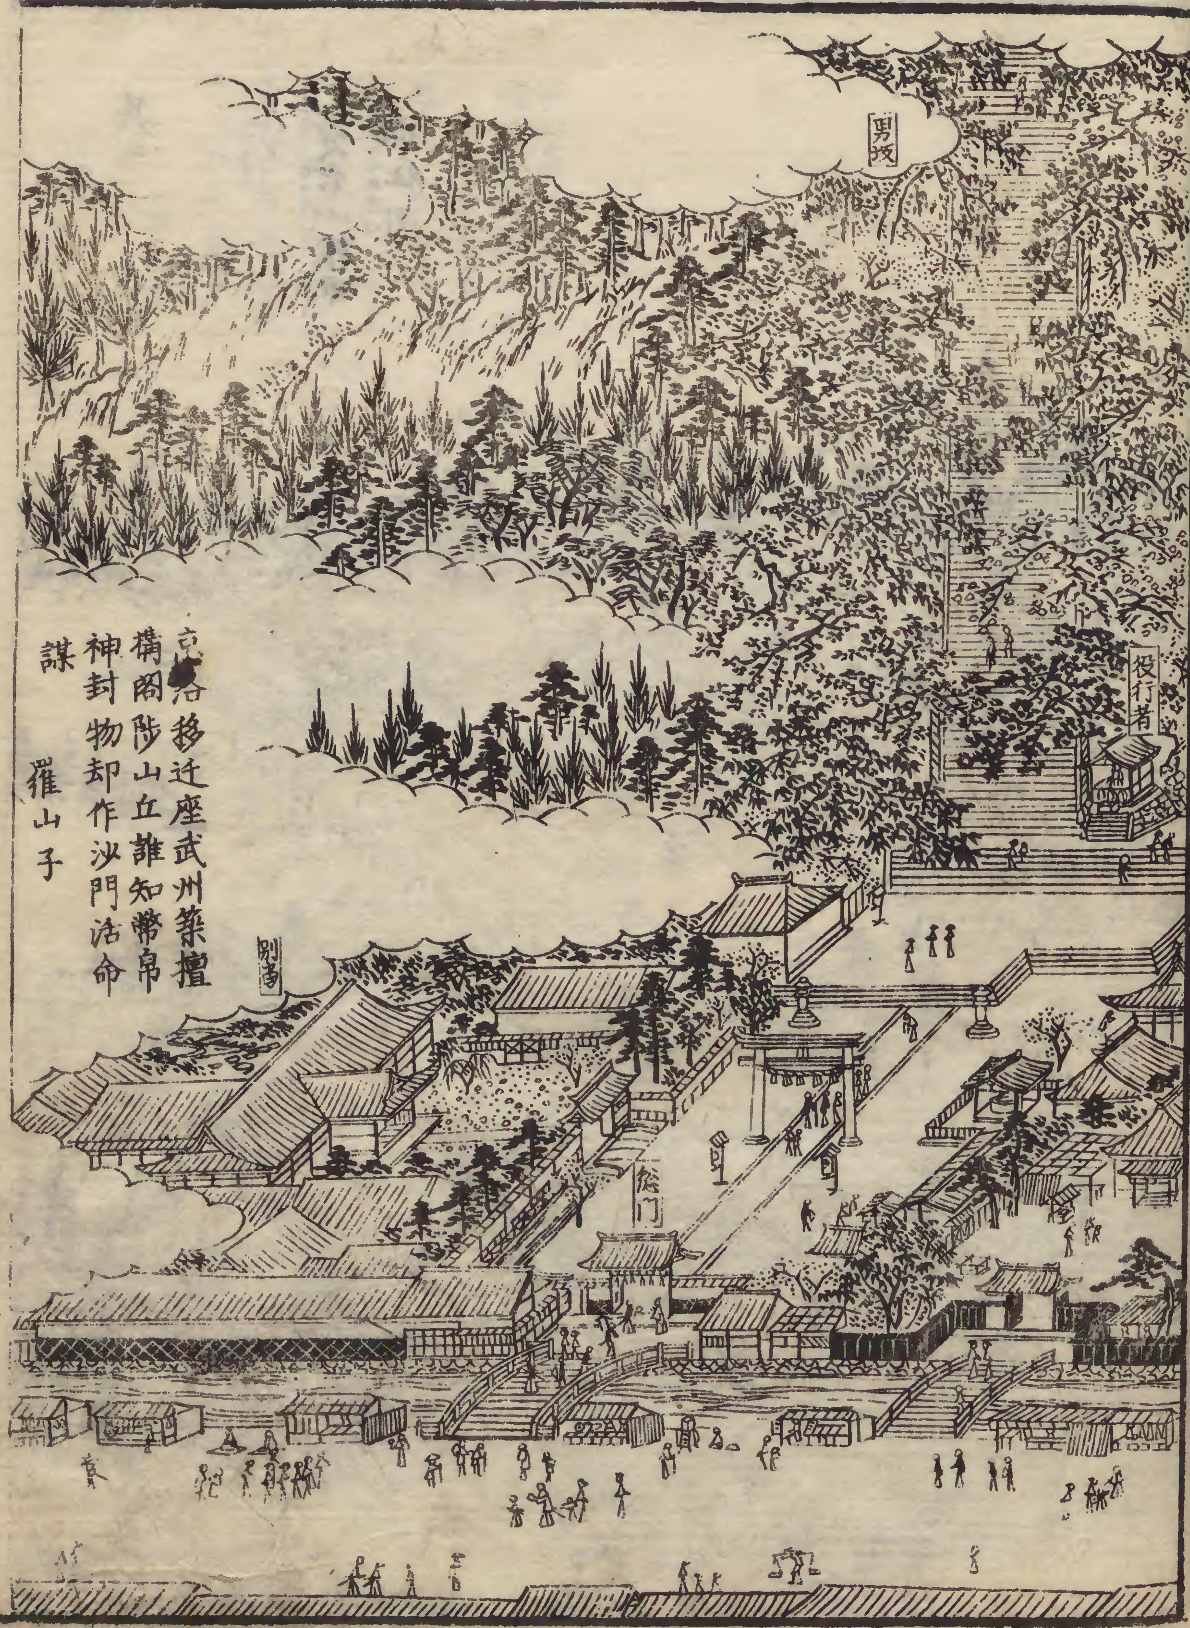 男坂
役行者
京洛移迁座武州築擅
構閣陟山丘誰知幣帛
神封物却作沙門活命
謀
羅山子
別当